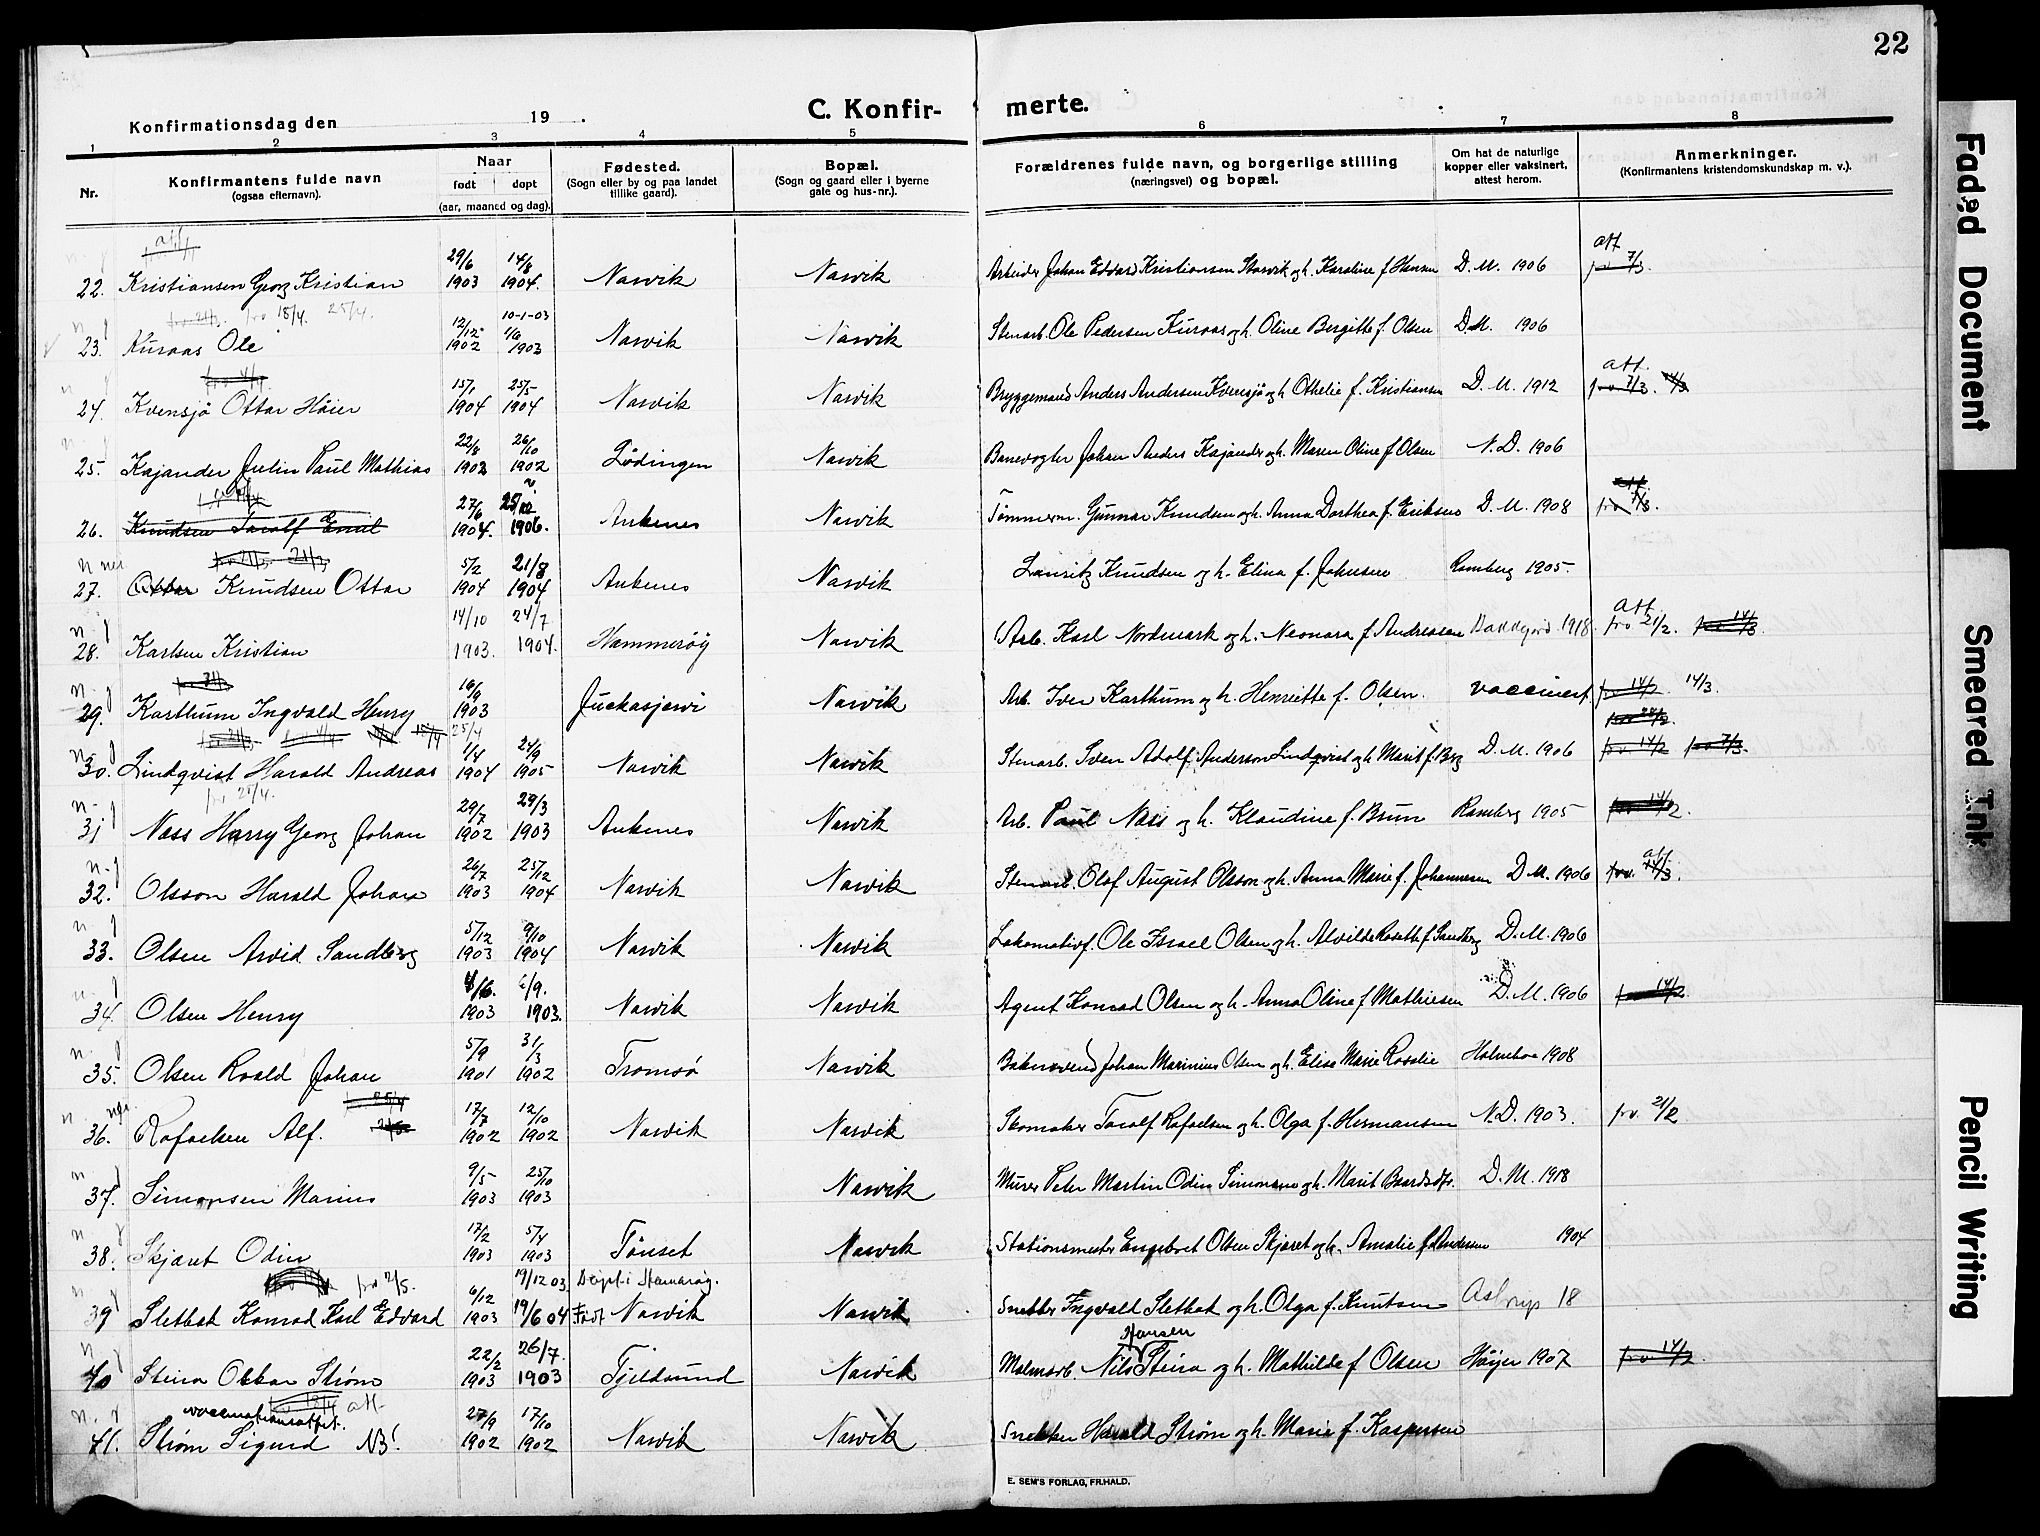 22
Konfirmationsdag den 19 .
C. Konfirmerte.
1 2 3 4 5 6 7 8
Nr. Konfirmantens fulde navn (ogsaa efternavn). Naar født døpt (aar, maaned og dag). Fødested. (Sogn eller by og paa landet tillike gaard). Bopæl. (Sogn og gaard eller i byerne gate og hus-nr.). Forældrenes fulde navn, og borgerlige stilling (næringsvei) og bopæl. Om hat de naturlige kopper eller vaksinert, attest herom. Anmerkninger. (Konfirmantens kristendomskundskap m. v.).
22. Kristiansen Georg Kristian 29/6 1903 14/8 1904. Narvik Narvik Arbeider Johan Edvard Kristiansen Storvik og h. Karoline f. Hansen D. M. 1906 att 7/3.
15/4. 25/4.
23. Kuraas Ole 12/12 1902 10-1-03 1903 Narvik Narvik Stenarb. Ole Pedersen Kuraas og h. Oline Bergitte f. Olsen D. M. 1906
24. Kvensjø Ottar Höier 15/1 1904 25/5 1904 Narvik Narvik Bryggemand Anders Andersen Kvensjø og h Othelie f. Kristiansen D. M. 1912 att. 7/3.
25. Kajander Julin Paul Mathias 22/8 1902 26/10 1902 Lödingen Narvik Banevogter Johan Anders Kajander og h. Maren Oline f Olsen N. D. 1906
26. Knudsen Taralf Emil 27/6 1904. 1906. Ankenes Narvik Tømmerm. Gunnar Knudsen og h. Anna Dorthea f. Eriksen D. M. 1908
27. Ottar Knudsen Ottar 5/2 1904 21/8 1904 Ankenes Narvik Lauritz Knudsen og h. Elina f. Johnsen Ramberg 1905
28. Karlsen Kristian 14/10 1903. 24/7 1904. Hammerøy Narvik Arb. Karl Nordmark og h. Neonara f Andreasen 1918 att 21/2. 14/3
29. Karthum Ingvald Henry 16/9 1903 Juckasjervi Narvik Arb. Iver Karthum og h. Henriette f. Olsen. vaccinert 14/2. 14/3.
25/4
30. Lindqvist Harald Andreas 1/8 1904 24/9 1905 Narvik Narvik Stenarb. Sven Adolf Anderson Lindqvist og h Marit f. Berg D. M. 1906 14/2 7/3.
25/4.
31 Næss Harry Georg Johan 29/7 1902 29/3 1903 Ankenes Narvik Arb. Paul Næss og h. Klaudine f. Brun Ramberg 1905 14/2.
32. Olsson Harald Johan 26/7 1903 25/12 1904 Narvik Narvik Stenarb. Olof August Olsson og h. Anna Marie f. Johannesen D. M. 1906 att. 14/3.
33. Olsen Arvid Sandberg 5/12 1903 9/10 1904 Narvik Narvik Lokomotivf. Ole Israel Olsen og h. Alvilde Rosette f Sandberg D. M. 1906
34. Olsen Henry 1903 6/9. 1903. Narvik Narvik Agent Konrad Olsen og h. Anna Oline f Mathiesen D. M. 1906 14/2
35. Olsen Roald Johan 5/9 1901 31/3 1902 Tromsö Narvik Bakersvend Johan Marinius Olsen og h. Elise Marie Rosalie Holmboe 1908
36. Rafaelsen Alf. 17/7 1902 12/10 1902 Narvik Narvik Skomaker Taralf Rafaelsen og h. Olga f. Hermansen N. D. 1903. frv. 21/2
37. Simonsen Marius 9/5 1903 25/10 1903 Narvik Murer Peter Martin Odin Simonsen og h. Marit Baardsdtr. D. M. 1918
38. Skjæret Odin 17/2 1903 5/4 1903 Tönset Narvik Stationsmester Engebret Olsen Skjæret og h. Amalie f. Andersen 1904
2/5.
39 Sletbak Konrad Karl Edvard 6/12 1903 19/12 03 19/6 04 Döpt i Hamarøy. Født Narvik Narvik Snekker Ingvald Sletbak og h. Olga f. Knutsen Astrup 18
40 Stina Oskar Strøm 22/2 1903 26/7. 1903 Tjeldsund Narvik Malmarb. Nils Hansen Stina og h. Mathilde f Olsen Höyer 1907 14/2.
vaccinationsattest. att.
41. Strøm Sigurd NB! 27/9 1902 17/10 1902 Narvik Narvik Snekker Harald Strøm og h. Marie f. Kaspersen
E. SEM'S FORLAG, FR.HALD.
Faded Document
Smeared Ink
Pencil Writing